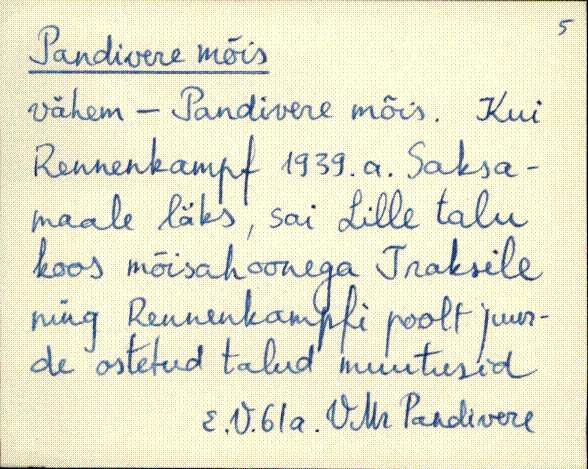 5
Pandivere mõis
vähem – Pandivere mõis. Kui
Rennenkampf 1939.a. Saksa-
maale läks, sai Lille talu
koos mõisahoonega Traksile
ning Rennenkampfi poolt juur-
de ostetud talud muutusid
E.V.61a. VMr Pandivere